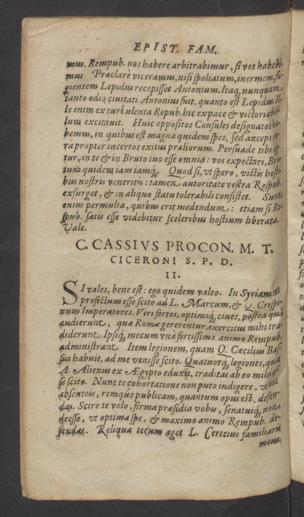 EPIST. FAM.
mus. Rempub. nos habere arbitrabimur, si vos habebi-
mus. Præclare viceramus, nisi spoliatum, inermem, fu-
gientem Lepidus recepisset Antonium. Itaq; nunquam
tanto odio civitati Antonius fuit, quanto est Lepidus. Il-
le enim ex turbulenta Repub. hic ex pace & victoria bel-
lum excitavit. Huic oppositos Consules designatos ha-
bemus, in quibus est magna quidem spes, sed anceps cu-
ra propter incertos exitus præliorum. Persuade tibi igi-
tur, in te & in Bruto tuo esse omnia: vos expectari, Bru-
tum quidem iam iamq;. Quod si, ut spero, victis hosti-
bus nostris veneritis: tamen autoritate vestra Respub.
exsurget, & in aliquo statu tolerabili consistet. Sunt
enim permulta, quibus erit medendum: etiam si Re-
spub. satis esse videbitur sceleribus hostium liberata.
Vale.
C. CASSIVS PROCON. M. T.
CICERONI S. P. D.
II.
SI vales, bene est: ego quidem valeo. In Syriam
profectum esse scito ad L. Marcum, & Q. Crisp-
num Imperatores. Viri fortes, optimiq; cives, postea quam
audierunt, quæ Romæ gererentur, exercitus mihi tra-
diderunt. Ipsiq; mecum una fortissimo animo Rempub.
administrant. Item legionem, quam Q. Cæcilius Bas-
sus habuit, ad me venisse scito. Quatuorq; legiones, quas
A. Alienus ex Ægypto eduxit, traditas ab eo mihi es-
se scito. Nunc te cohortatione non puto indigere, ut nos
absenteis, remque publicam, quantum opus est, defen-
das. Scire te volo, firma præsidia vobis, senatuiq; non
deesse, ut optima spe, & maximo animo Rempub. de-
fendas. Reliqua tecum aget L. Certeius familiaris
meus.